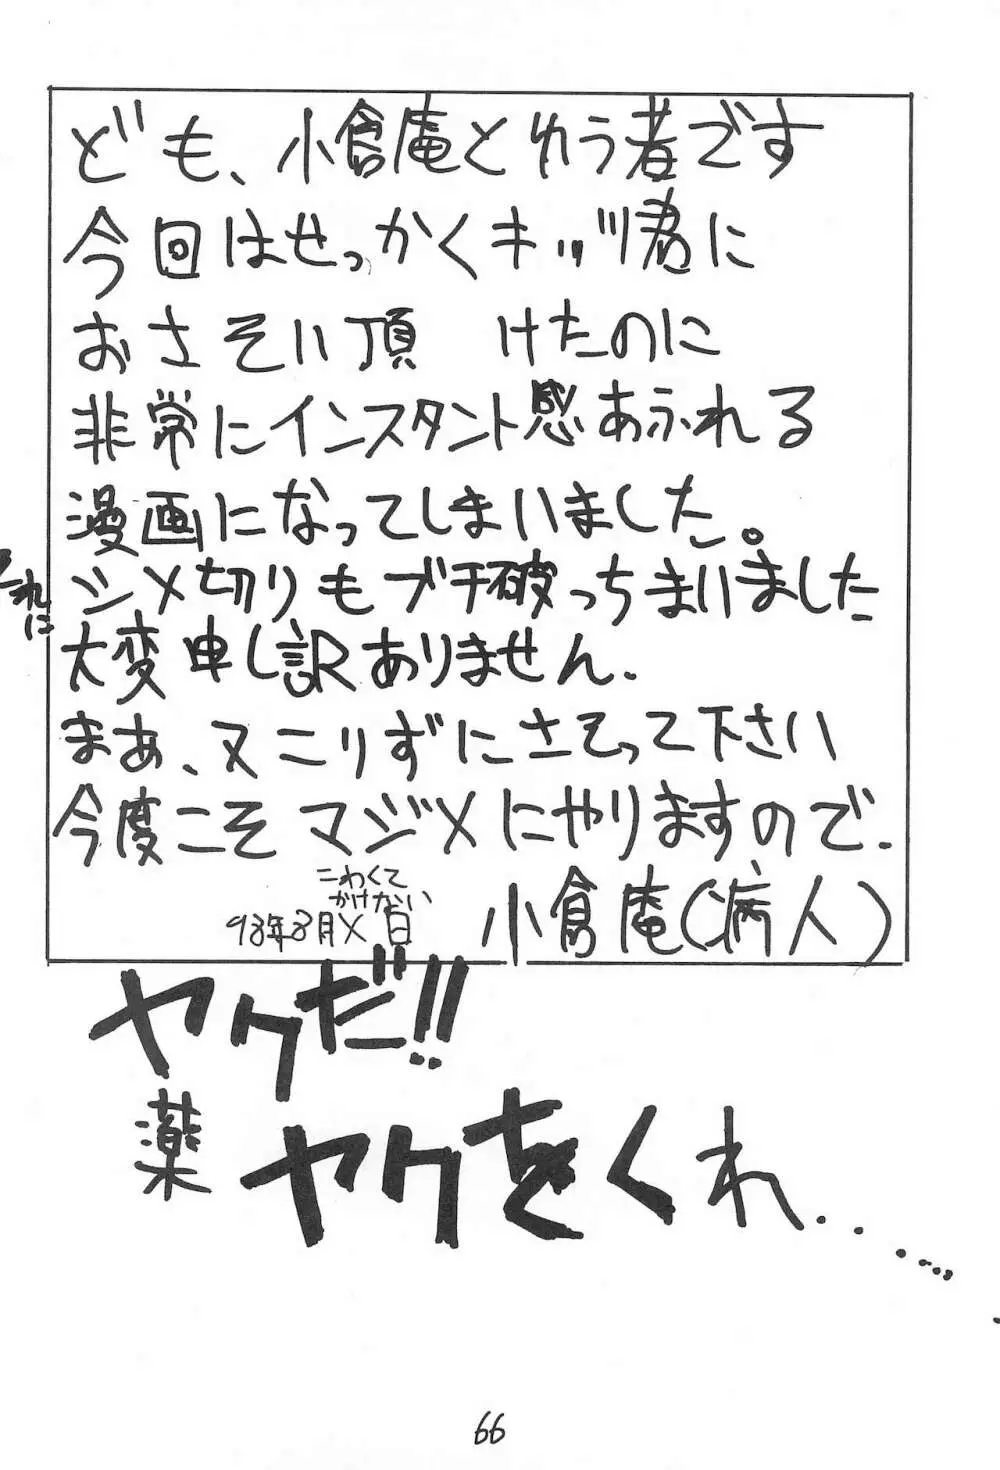 ども、小倉庵とゆう者です
今回はせっかくキッツ君に
おさそい頂 けたのに
非常にインスタント感あふれる
漫画になってしまいました。
それに
シメ切りもブチ破っちまいました
大変申し訳ありません.
まあ、又こりずにさそって下さい
今度こそマジメにやりますので.
こわくて
かけない
93年3月X日 小倉庵(病人)
ヤクだ!!
薬 ヤクをくれ........
66